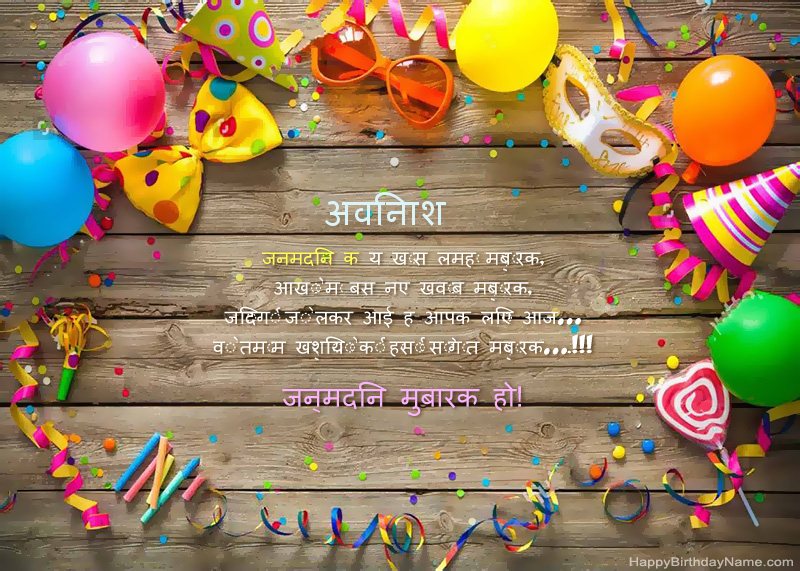 अविनाश
जनमदिन के ये खास लमहे मुबारक,
आंखों में बसे नए ख्वाब मुबारक,
जिंदगी जो लेकर आई है आपके लिए आज...
वो तमाम खुशियों की हसीं सौगात मुबारक...!!!
जन्मदिन मुबारक हो!
HappyBirthdayName.com